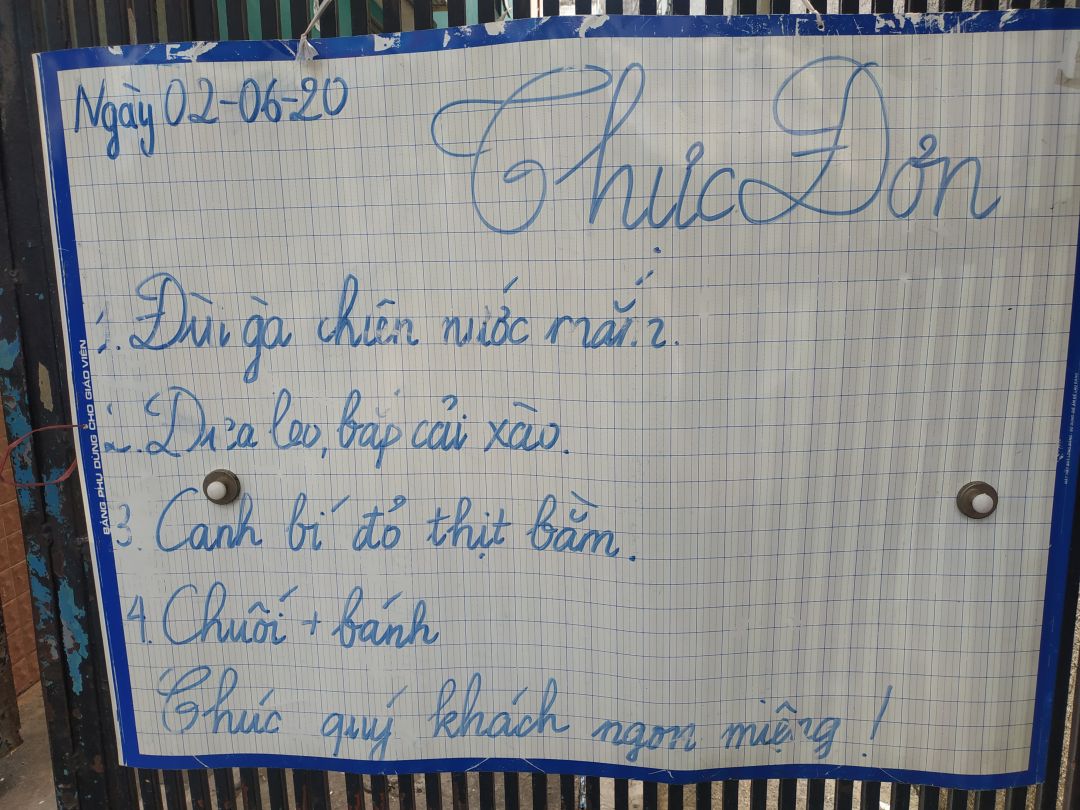 Ngày 02-06-20
Thực Đơn
1. Đùi gà chiên nước mắm.
2. Dưa leo, bắp cải xào.
3. Canh bí đỏ thịt bằm.
4. Chuối + bánh
Chúc quý khách ngon miệng!
BẢNG PHỤ DÙNG CHO GIÁO VIÊN